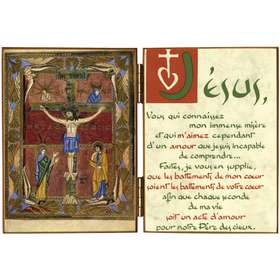 Jésus,
Vous qui connaissez
mon immense misère
et qui m'aimez cependant
d'un amour que je suis incapable
de comprendre...
Faites, je vous en supplie,
que les battements de mon coeur
soient les battements de votre coeur
afin que chaque seconde
de ma vie
soit un acte d'amour
pour notre Père des cieux.